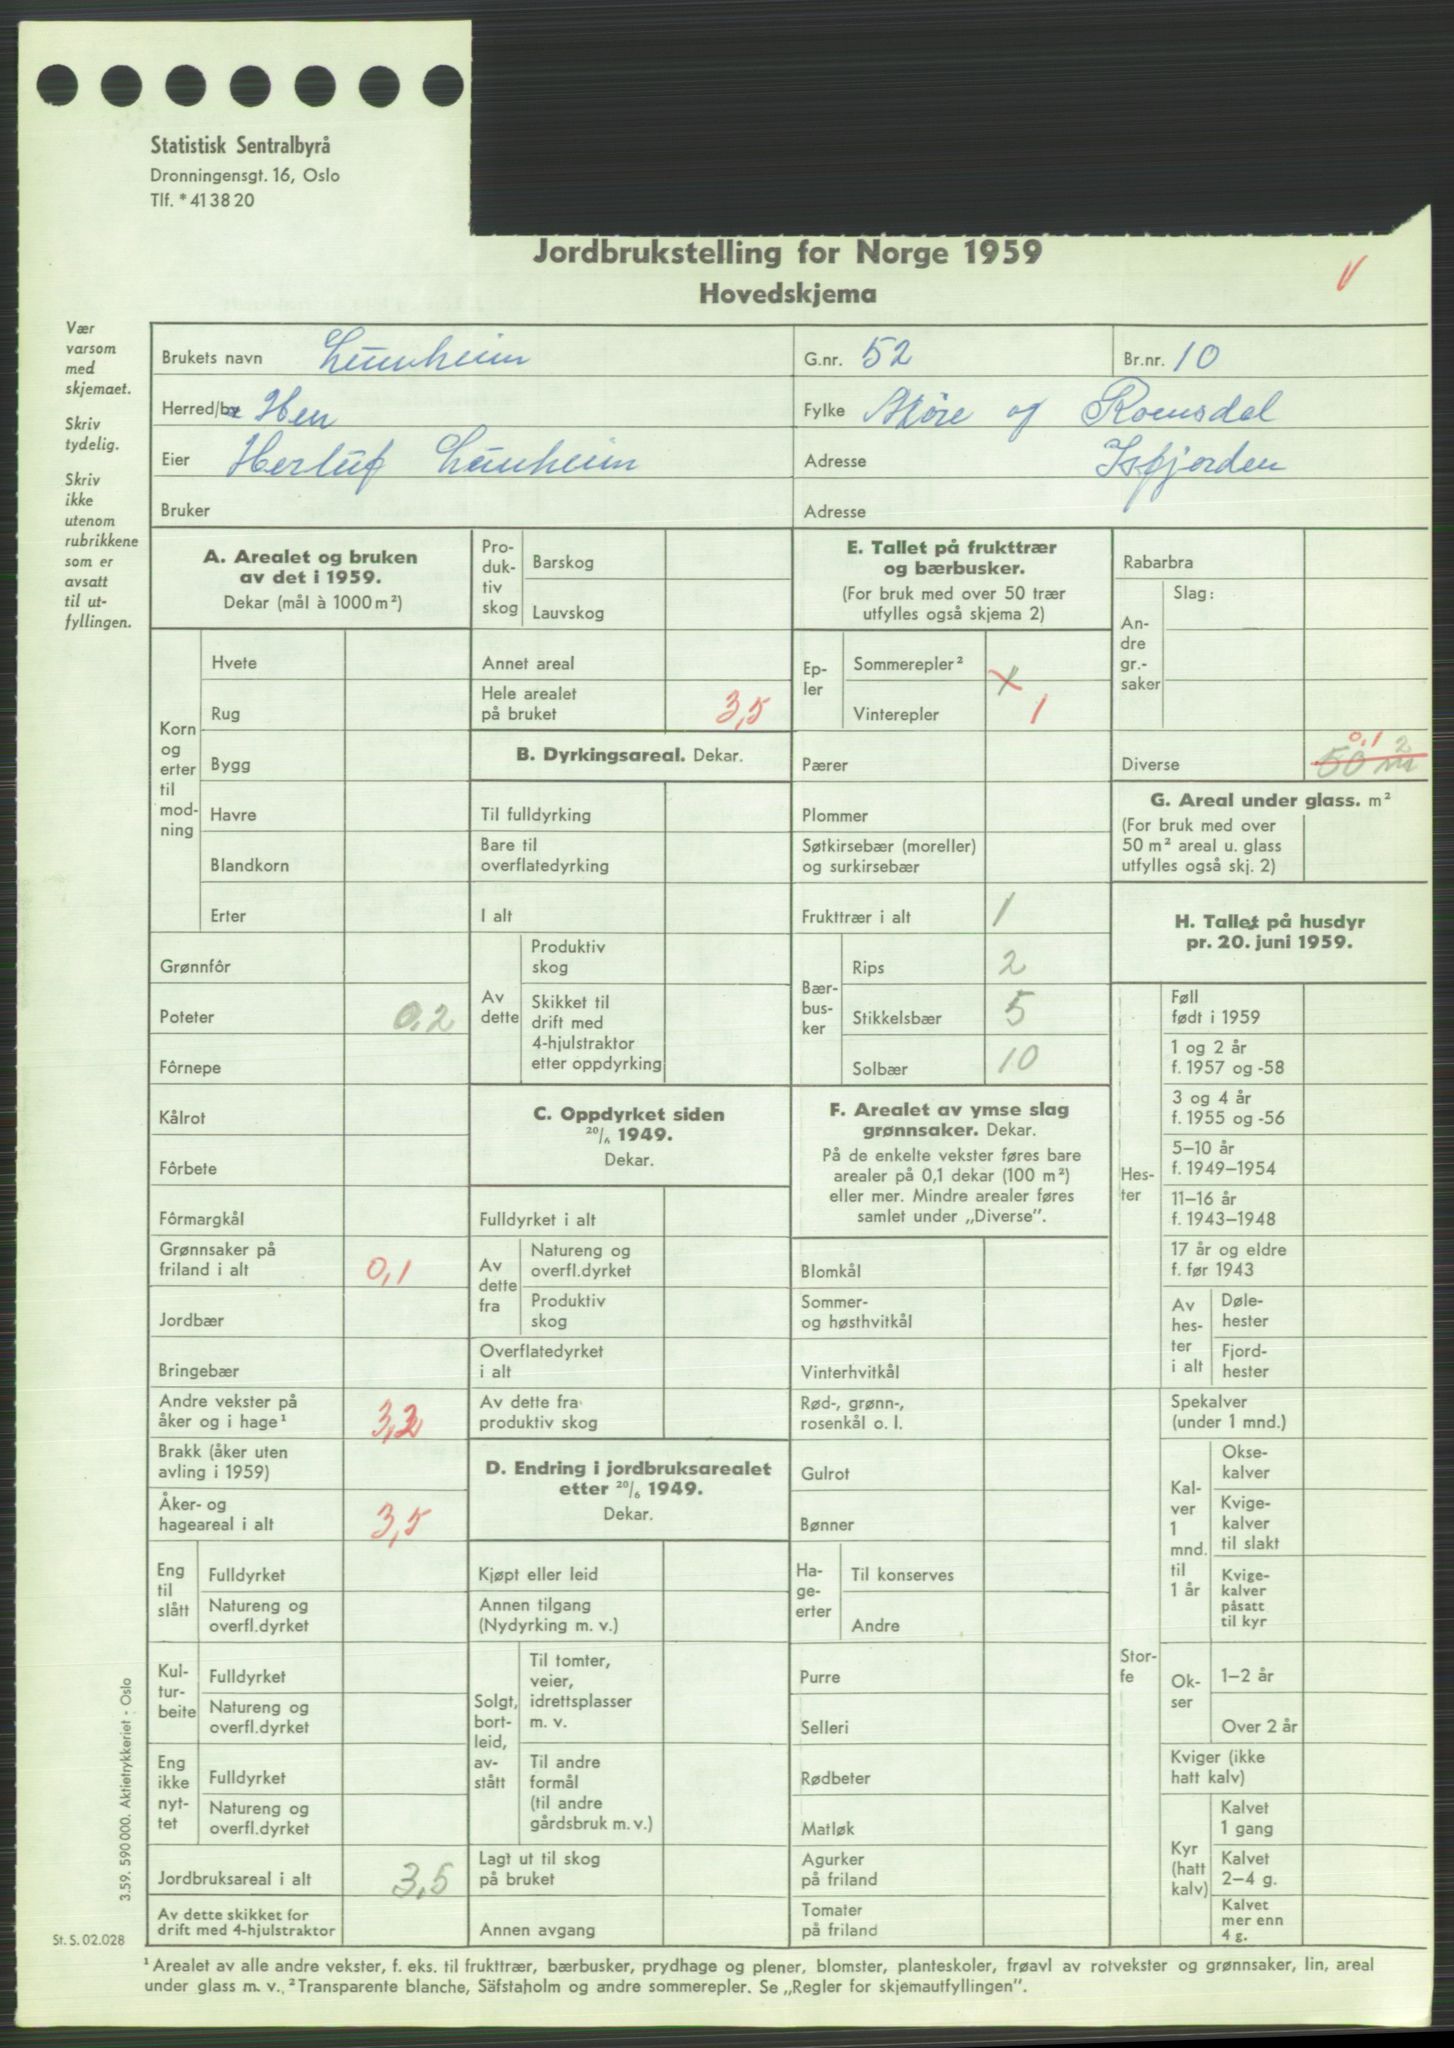 Statistisk Sentralbyrå
Dronningensgt. 16, Oslo
Tlf. * 41 38 20
Jordbrukstelling for Norge 1959
Hovedskjema
Vær
varsom
med
skjemaet.
Skriv
tydelig.
Skriv
ikke
utenom
rubrikkene
som er
avsatt
til ut-
fyllingen.
Brukets navn
G.nr. 52
Br.nr. 10
Herred/by Hen
Fylke Møre og Romsdal
Eier Herluf
Adresse Isfjorden
Bruker
Adresse
A. Arealet og bruken
av det i 1959.
Dekar (mål à 1000 m²)
Korn
og
erter
til
mod-
ning
Hvete
Rug
Bygg
Havre
Blandkorn
Erter
Grønnfôr
Poteter 0,2
Fôrnepe
Kålrot
Fôrbete
Fôrmargkål
Grønnsaker på
friland i alt 0,1
Jordbær
Bringebær
Andre vekster på
åker og i hage¹ 3,2
Brakk (åker uten
avling i 1959)
Åker- og
hageareal i alt 3,5
Eng
til
slått
Fulldyrket
Natureng og
overfl.dyrket
Kul-
tur-
beite
Fulldyrket
Natureng og
overfl.dyrket
Eng
ikke
nyt-
tet
Fulldyrket
Natureng og
overfl.dyrket
Jordbruksareal i alt 3,5
Av dette skikket for
drift med 4-hjulstraktor
Pro-
duk-
tiv
skog
Barskog
Lauvskog
Annet areal
Hele arealet
på bruket 3,5
B. Dyrkingsareal. Dekar.
Til fulldyrking
Bare til
overflatedyrking
I alt
Av
dette
Produktiv
skog
Skikket til
drift med
4-hjulstraktor
etter oppdyrking
C. Oppdyrket siden
20/6 1949.
Dekar.
Fulldyrket i alt
Av
dette
fra
Natureng og
overfl.dyrket
Produktiv
skog
Overflatedyrket
i alt
Av dette fra
produktiv skog
D. Endring i jordbruksarealet
etter 20/6 1949.
Dekar.
Kjøpt eller leid
Annen tilgang
(Nydyrking m. v.)
Solgt,
bort-
leid,
av-
stått
Til tomter,
veier,
idrettsplasser
m. v.
Til andre
formål
(til andre
gårdsbruk m. v.)
Lagt ut til skog
på bruket
Annen avgang
E. Tallet på frukttrær
og bærbusker.
(For bruk med over 50 trær
utfylles også skjema 2)
Ep-
ler
Sommerepler²
Vinterepler 1
Pærer
Plommer
Søtkirsebær (moreller)
og surkirsebær
Frukttrær i alt 1
Bær-
bus-
ker
Rips 2
Stikkelsbær 5
Solbær 10
F. Arealet av ymse slag
grønnsaker. Dekar.
På de enkelte vekster føres bare
arealer på 0,1 dekar (100 m²)
eller mer. Mindre arealer føres
samlet under „Diverse”.
Blomkål
Sommer-
og høsthvitkål
Vinterhvitkål
Rød-, grønn-,
rosenkål o. l.
Gulrot
Bønner
Ha-
ge-
erter
Til konserves
Andre
Purre
Selleri
Rødbeter
Matløk
Agurker
på friland
Tomater
på friland
Rabarbra
An-
dre
gr.-
saker
Slag:
Diverse 0,1
50 m²
G. Areal under glass. m²
(For bruk med over
50 m² areal u. glass
utfylles også skj. 2)
H. Tallet på husdyr
pr. 20. juni 1959.
Hes-
ter
Føll
født i 1959
1 og 2 år
f. 1957 og -58
3 og 4 år
f. 1955 og -56
5–10 år
f. 1949–1954
11–16 år
f. 1943–1948
17 år og eldre
f. før 1943
Av
hes-
ter
i alt
Døle-
hester
Fjord-
hester
Stor-
fe
Spekalver
(under 1 mnd.)
Kal-
ver
1
mnd.
til
1 år
Okse-
kalver
Kvige-
kalver
til slakt
Kvige-
kalver
påsatt
til kyr
Ok-
ser
1–2 år
Over 2 år
Kviger (ikke
hatt kalv)
Kyr
(hatt
kalv)
Kalvet
1 gang
Kalvet
2–4 g.
Kalvet
mer enn
4 g.
3.59. 590 000. Aktietrykkeriet - Oslo
St. S. 02.028
¹ Arealet av alle andre vekster, f. eks. til frukttrær, bærbusker, prydhage og plener, blomster, planteskoler, frøavl av rotvekster og grønnsaker, lin, areal
under glass m. v., ² Transparente blanche, Säfstaholm og andre sommerepler. Se „Regler for skjemautfyllingen”.